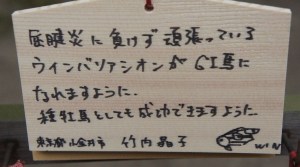 屈腱炎に負けず頑張っている
ウインバリアシオンがGI馬に
なれますように.
種牡馬としても成功できますように
東京都小金井市 竹内晶子
WIN